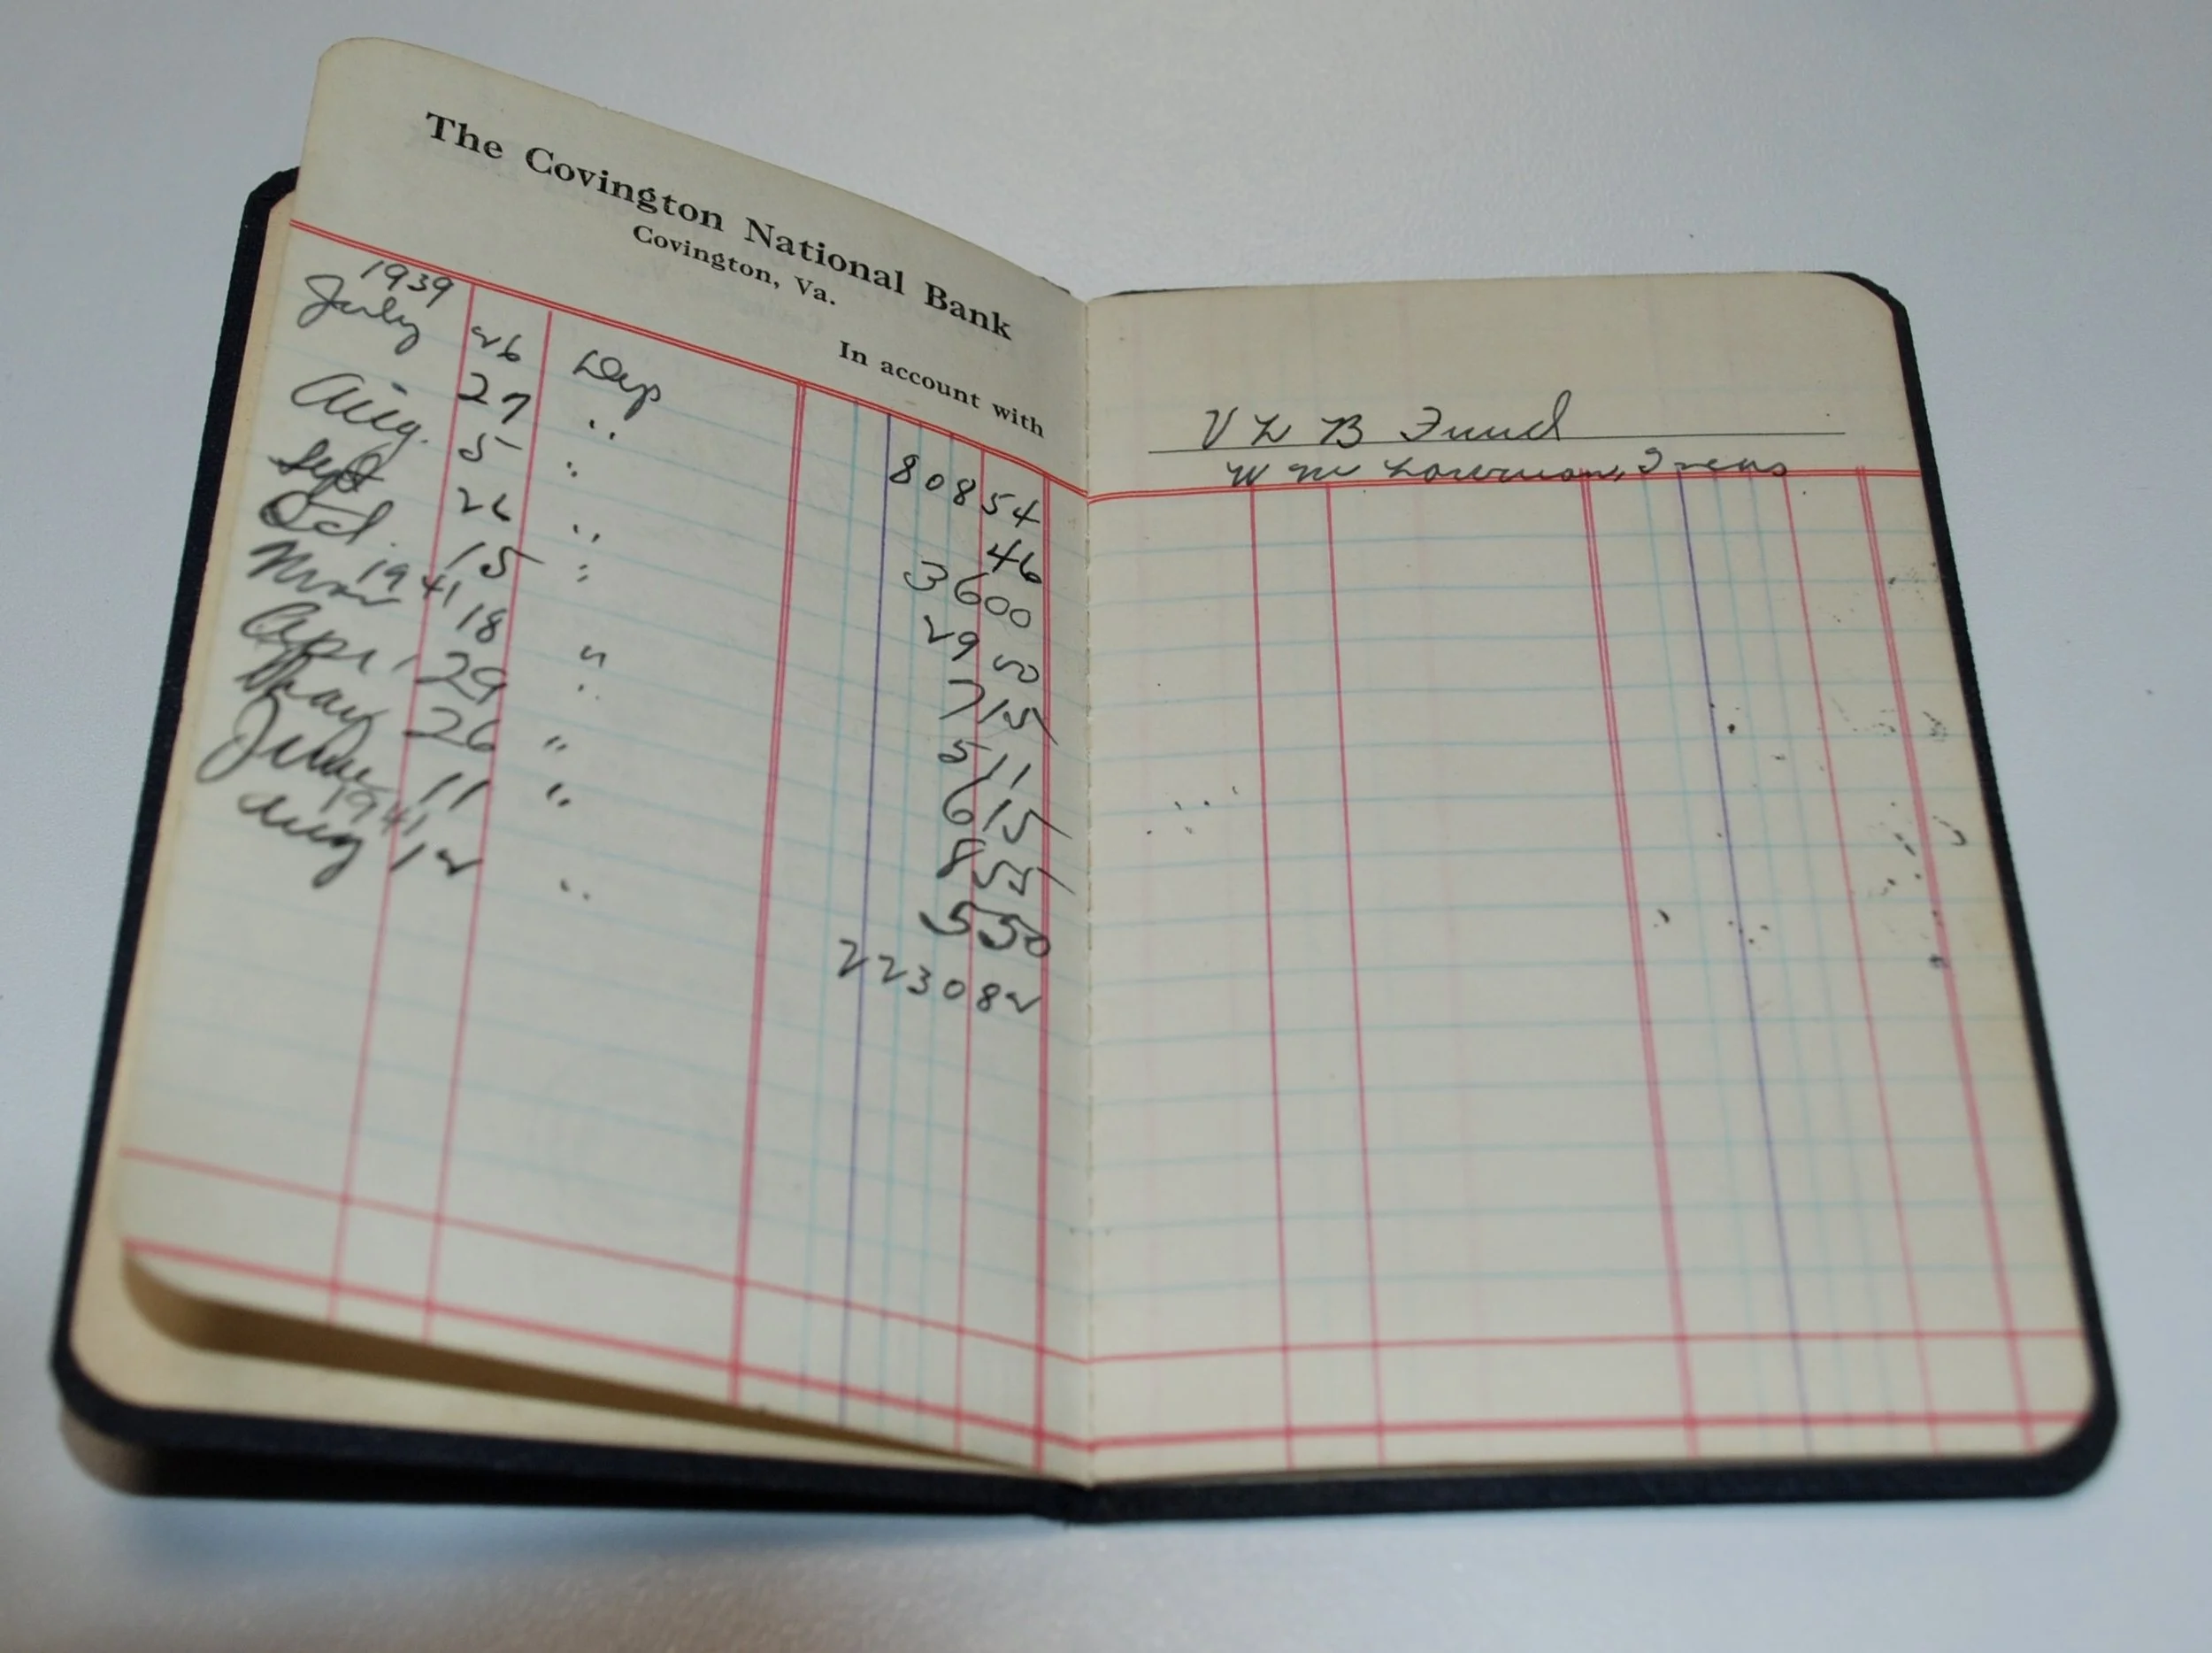 The Covington National Bank
Covington, Va.
In account with
1939
July 26 Dep 808 54
27 " 46
Aug. 5 " 36 00
Sept 26 " 29 50
Oct. 15 " 7 15
1941
Mar 18 " 5 11
Apr. 29 " 6 15
May 26 " 8 55
June 11 " 5 50
1941
Aug 12 " 2230 82
V L B Fund
W M Lowman, Treas